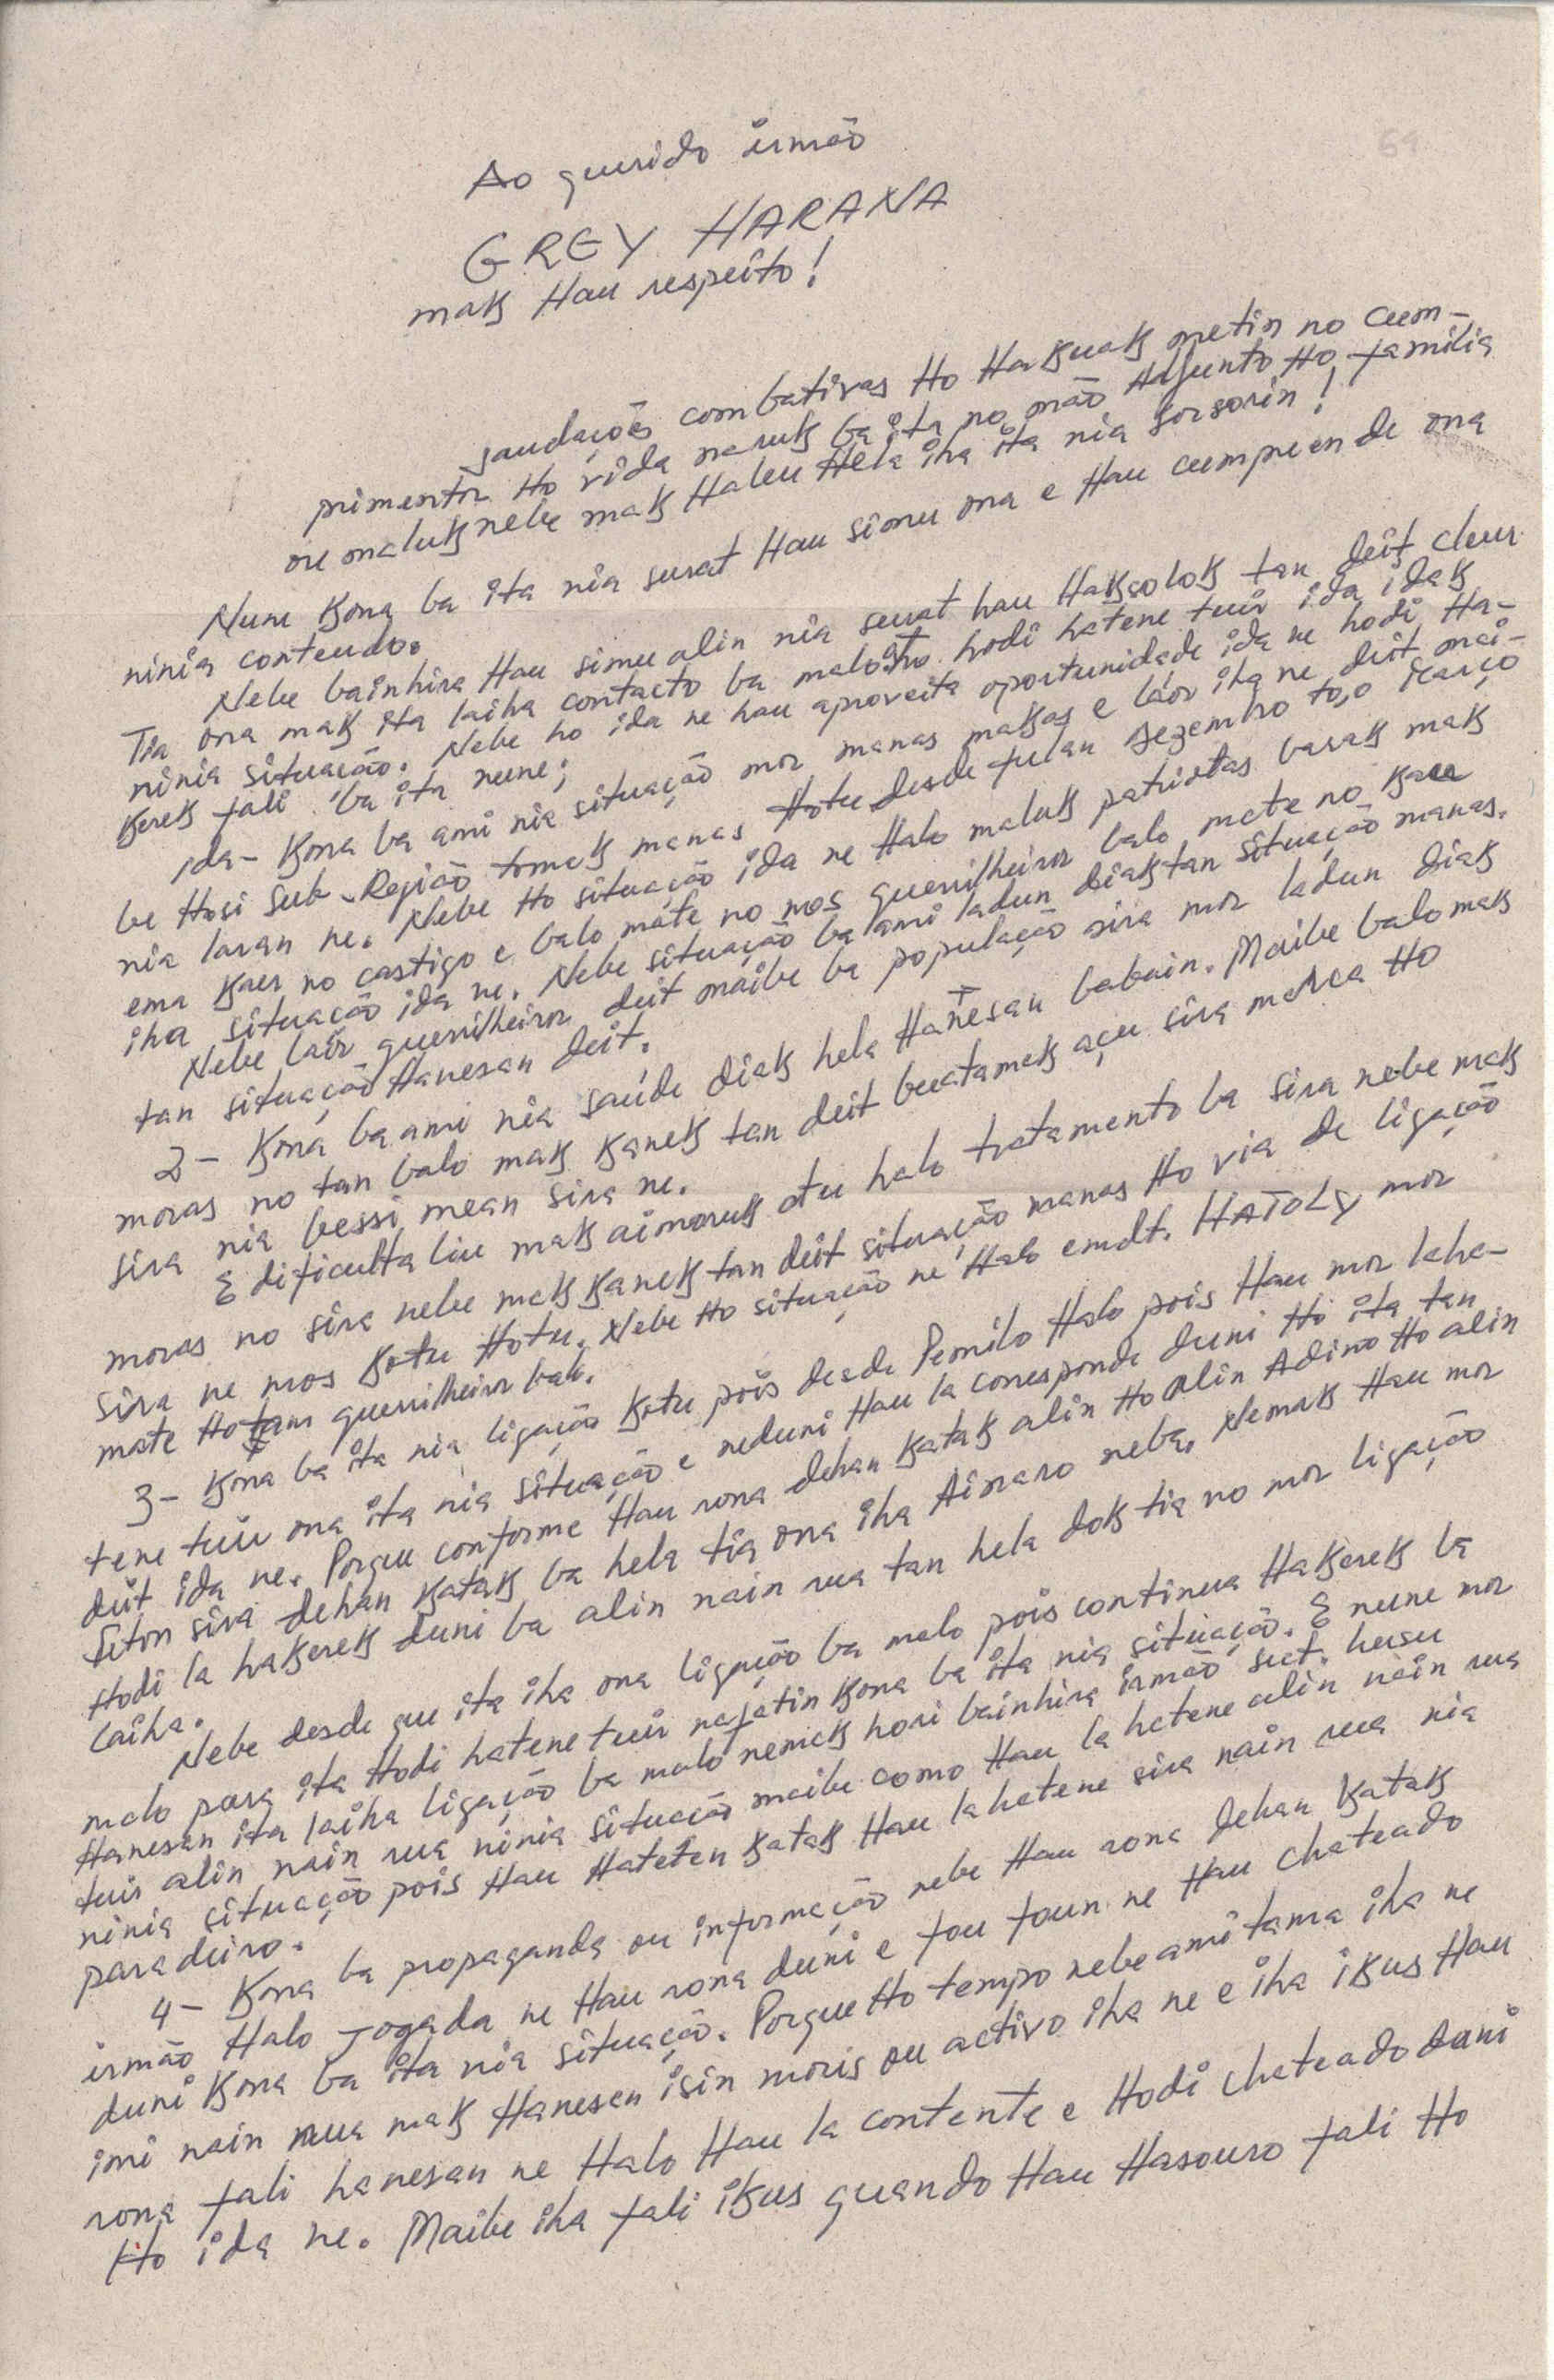 Ao querido irmão
GREY HARANA
mak Hau respeito!
saudações combativas Ho Hakuak metin no cum-
primentos Ho vida naruk ba ita no mão Adjunto Ho familia
ou maluk nebe mak Haleu Hela iha ita nia sorsorin!
Nune kona ba ita nia surat Hau simu ona e Hau cumpreende ona
ninia conteudo.
Nebe bainhira Hau simu alin nia surat hau Haksolok tan deit cleur
Tia ona mak ita laiha contacto ba malo hodi hatene tuir ida idak
ninia situação. Nebe ho ida ne hau aproveita oportunidade ida ne hodi Ha-
kerek fali ba ita nune;
ida- Kona ba ami nia situação mos manas makas e láos iha ne deit mai-
be Hosi Sub-Região tomak manas Hotu desde fulan Dezembro to,o Março
nia laran ne. Nebe Ho situação ida ne Halo maluk patriotas barak mak
ema kaer no castigo e balo mate no mos guerrilheiros balo mate no kaer
iha situação ida ne. Nebe situação ba ami ladun diak tan situação manas.
Nebe laós guerrilheiros deit maibe ba população sira mos ladun diak
tan situação Hanesan deit.
2- Kona ba ami nia saúde diak hela Hanesan babain. Maibe balo mak
moras no tan balo mak kanek tan deit buatamak açu sira merca Ho
sira nia bessi mean sira ne.
E dificulta liu mak aimoruk atu halo tratamento ba sira nebe mak
moras no sira nebe mak kanek tan deit situação manas Ho via de ligação
sira ne mos kotu Hotu. Nebe Ho situação ne Halo cmdt. HATOLY mos
mate Ho tam guerrilheiros balo.
3- Kona ba ita nia ligação kotu pois desde Pemilo Halo pois Hau mos laha-
tene tuir ona ita nia situação e neduni Hau la corresponde duni Ho ita tan
deit ida ne. Porque conforme Hau rona dehan katak alin Ho alin Adino Ho alin
Seton sira dehan katak ba hela tia ona iha Ainaro neba. Nemak Hau mos
Hodi la hakerek duni ba alin nain rua tan hela dok tia no mos ligação
laiha.
Nebe desde que ita iha ona ligação ba malo pois continua Hakerek ba
malo para ita Hodi hatene tuir nafatin kona ba ita nia situação. E nune mos
Hanesan ita laiha ligação ba malo nemak hori bainhira irmão suct. husu
tuir alin nain rua ninia situação maibe como Hau la hatene alin nain rua
ninia situação pois Hau Hateten katak Hau la hatene sira nain rua nia
paradeiro.
4- Kona ba propaganda ou informação nebe Hau rona dehan katak
irmão Halo jogada ne Hau rona duni e fou foun ne Hau chateado
duni kona ba ita nia situação. Porque Ho tempo nebe ami tama iha ne
imi nain rua mak Hanesan isin moris ou activo iha ne e iha ikus Hau
rona fali hanesan ne Halo Hau la contente e Hodi chateado duni
Ho ida ne. Maibe iha fali ikus quando Hau Hasouro fali Ho